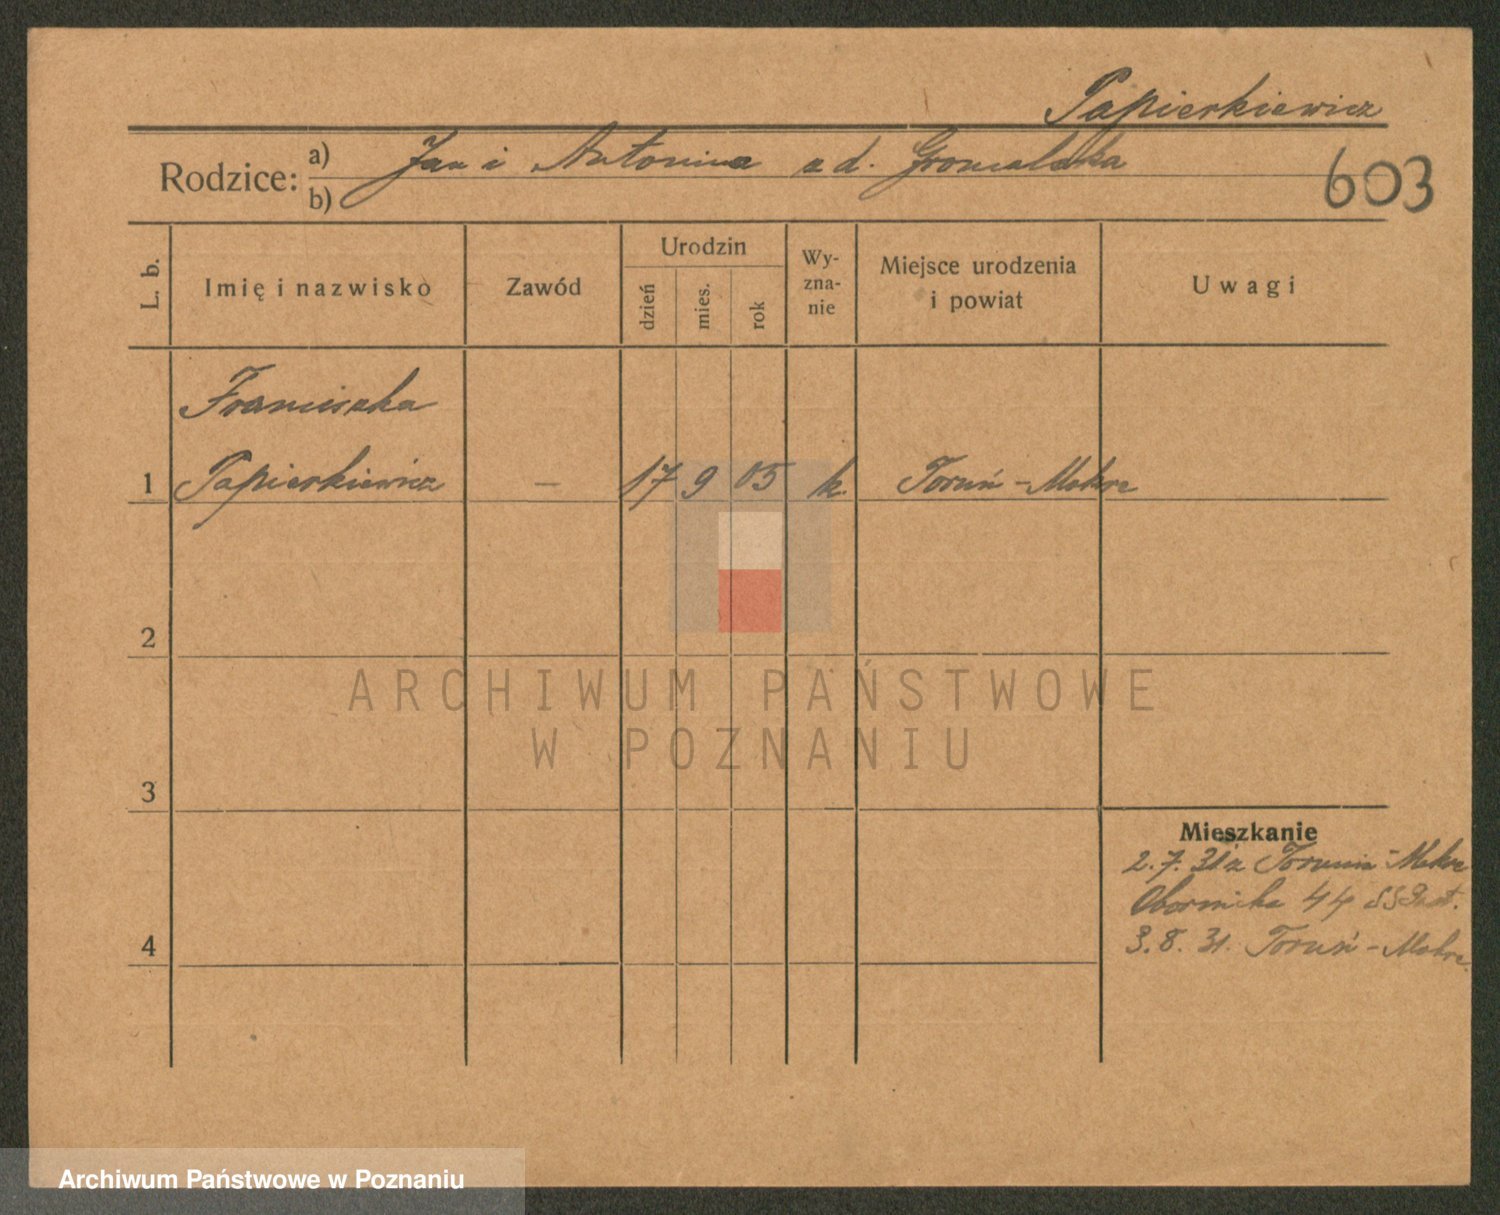 Papierkiewicz
Rodzice: a) Jan i Antonina z d.
b)
603
L. b.
Imię i nazwisko
Zawód
Urodzin
dzień
mies.
rok
Wy-
zna-
nie
Miejsce urodzenia
i powiat
Uwagi
Franciszka
1 Papierkiewicz — 17 9 05 k. Toruń - Mokre
2
ARCHIWUM PAŃSTWOWE
W POZNANIU
3
Mieszkanie
2.7.31 z Torunia - Mokre
Obornicka 44
4
3.8.31. Toruń - Mokre.
Archiwum Państwowe w Poznaniu